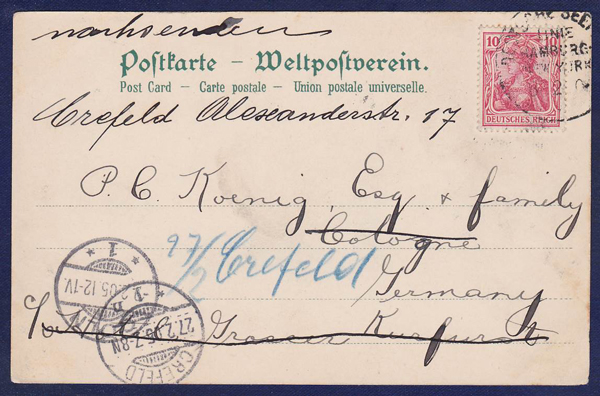 nachsenden
Postkarte – Weltpostverein.
Post Card – Carte postale – Union postale universelle.
10
DEUTSCHES REICH
LINIE
HAMBURG-
Crefeld Alexanderstr. 17
P. C. Koenig, Esq & family
Cologne
27/2 Crefeld
Germany
c/o Grosser Kurfürst
1
05.12-1V.
27.2.05.7-8N
CREFELD